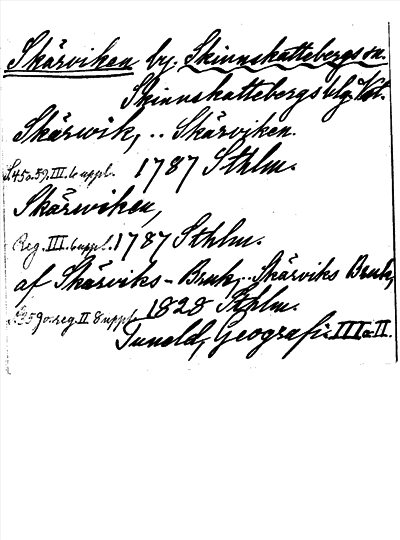 Skärviken by. Skinnskattebergs sn.
Skinnskattebergs blg. Vst.
Skärwik, .. Skärviken.
S. 45 o. 59. III. 6 uppl. 1787 Sthlm.
Skärwiken,
Reg. III. 6 uppl. 1787 Sthlm.
af Skärviks-Bruk, .. Skärviks Bruk,
359 o. reg. II 8 uppl. 1828 Sthlm.
Tuneld, Geografi III o. II.